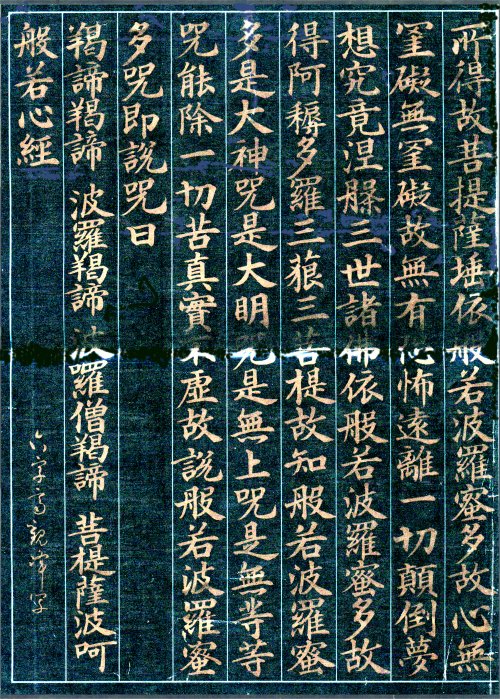 所得故菩提薩埵依般若波羅蜜多故心無
罣礙無罣礙故無有恐怖遠離一切顛倒夢
想究竟涅槃三世諸佛依般若波羅蜜多故
得阿耨多羅三藐三菩提故知般若波羅蜜
多是大神咒是大明咒是無上咒是無等等
咒能除一切苦真實不虛故說般若波羅蜜
多咒即說咒曰
羯諦羯諦 波羅羯諦 波囉僧羯諦 菩提薩波呵
般若心經